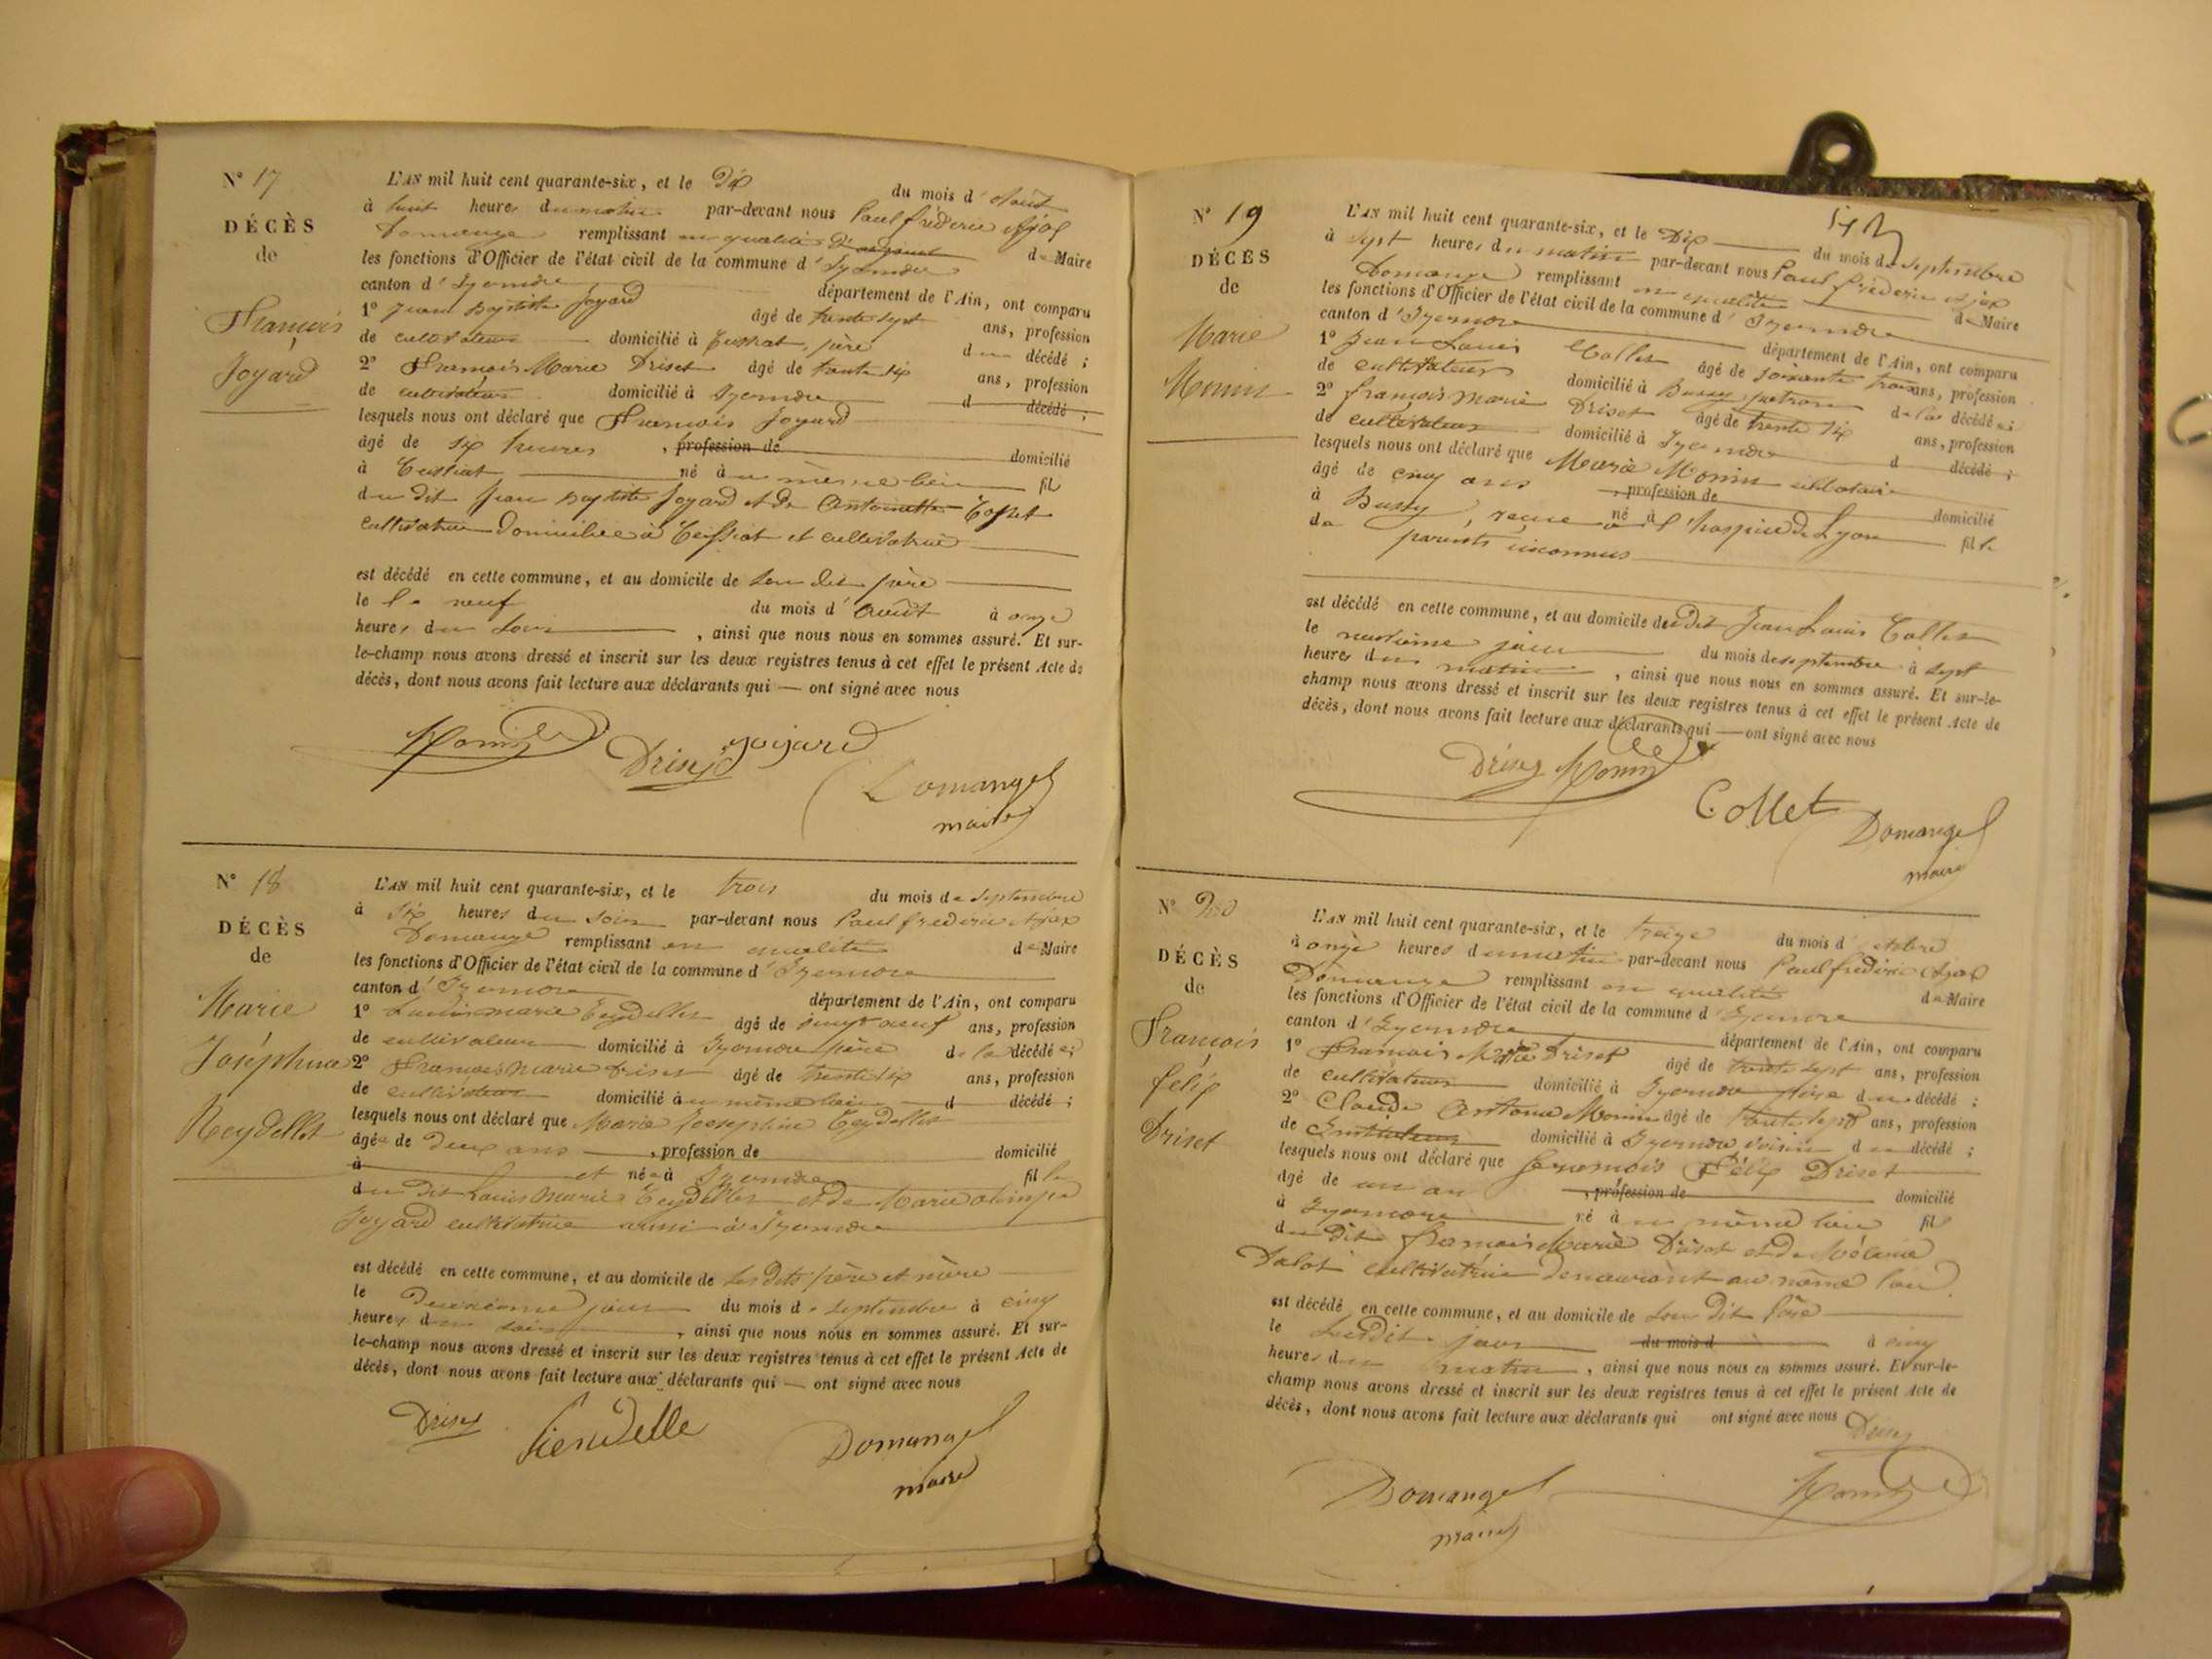 N° 17
DÉCÈS
de
François
Joyard
L'AN mil huit cent quarante-six, et le Dix du mois d'Août
à huit heures du matin par-devant nous Paul frédéric Ajax
Domange remplissant en qualité de Maire
les fonctions d'Officier de l'état civil de la commune d'Izernore
canton d'Izernore département de l'Ain, ont comparu
1° Jean Baptiste Joyard âgé de trente sept ans, profession
de cultivateur domicilié à Ceissiat, père du décédé ;
2° François Marie Driset âgé de trente six ans, profession
de cultivateur domicilié à Izernore d décédé ;
lesquels nous ont déclaré que François Joyard
âgé de six heures , profession de domicilié
à Ceissiat né à u même lieu fils
du dit Jean Baptiste Joyard et de Antoinette
cultivatrice domiciliée à Ceissiat et cultivatrice
est décédé en cette commune, et au domicile de son dit père
le neuf du mois d'Août à onze
heures du soir , ainsi que nous nous en sommes assuré. Et sur-
le-champ nous avons dressé et inscrit sur les deux registres tenus à cet effet le présent Acte de
décès, dont nous avons fait lecture aux déclarants qui — ont signé avec nous
Monin Driset Joyard
Domange
maire
N° 18
DÉCÈS
de
Marie
Joséphine
Reydellet
L'AN mil huit cent quarante-six, et le trois du mois de Septembre
à six heures du soir par-devant nous Paul frederic Ajax
Domange remplissant en qualité de Maire
les fonctions d'Officier de l'état civil de la commune d'Izernore
canton d'Izernore département de l'Ain, ont comparu
1° Louis marie Reydellet âgé de vingt neuf ans, profession
de cultivateur domicilié à Izernore père de la décédée ;
2° François Marie Driset âgé de trente six ans, profession
de cultivateur domicilié à u même lieu d décédé ;
lesquels nous ont déclaré que Marie Joséphine Reydellet
âgée de deux ans , profession de domicilié
à et née à Izernore fille
du dit Louis Marie Reydellet et de Marie olimpe
Joyard cultivatrice aussi à Izernore
est décédé en cette commune, et au domicile de ses dits père et mère
le deuxième jour du mois de septembre à cinq
heures du soir , ainsi que nous nous en sommes assuré. Et sur-
le-champ nous avons dressé et inscrit sur les deux registres tenus à cet effet le présent Acte de
décès, dont nous avons fait lecture aux déclarants qui — ont signé avec nous
Driset
Domange
maire
N° 19
DÉCÈS
de
Marie
Monin
L'AN mil huit cent quarante-six, et le Dix du mois de Septembre
à sept heures du matin par-devant nous Paul frédéric Ajax
Domange remplissant en qualité de Maire
les fonctions d'Officier de l'état civil de la commune d'Izernore
canton d'Izernore département de l'Ain, ont comparu
1° Jean Louis Collet âgé de soixante trois ans, profession
de cultivateur domicilié à Bussy patron de la décédée ;
2° françois marie Driset âgé de trente six ans, profession
de cultivateur domicilié à Izernore d décédé ;
lesquels nous ont déclaré que Marie Monin célibataire
âgé de cinq ans , profession de domicilié
à Bussy, reçue né à l'hospice de Lyon fille
de parents inconnus
est décédé en cette commune, et au domicile du dit Jean Louis Collet
le neuvième jour du mois de septembre à sept
heures du matin , ainsi que nous nous en sommes assuré. Et sur-le-
champ nous avons dressé et inscrit sur les deux registres tenus à cet effet le présent Acte de
décès, dont nous avons fait lecture aux déclarants qui — ont signé avec nous
Driset Monin
Collet Domange
maire
N° 20
DÉCÈS
de
François
félix
Driset
L'AN mil huit cent quarante-six, et le treize du mois d'octobre
à onze heures du matin par-devant nous Paul frédéric Ajax
Domange remplissant en qualité de Maire
les fonctions d'Officier de l'état civil de la commune d'Izernore
canton d'Izernore département de l'Ain, ont comparu
1° François Marie Driset âgé de trente sept ans, profession
de cultivateur domicilié à Izernore père du décédé ;
2° Claude Antoine Monin âgé de trente sept ans, profession
de Instituteur domicilié à Izernore voisin du décédé ;
lesquels nous ont déclaré que François Félix Driset
âgé de un an , profession de domicilié
à Izernore né à u même lieu fils
du dit François Marie Driset et de Mélanie
Dalot cultivatrice demeurant au même lieu.
est décédé en cette commune, et au domicile de son dit père
le susdit jour du mois d à cinq
heures du matin , ainsi que nous nous en sommes assuré. Et sur-le-
champ nous avons dressé et inscrit sur les deux registres tenus à cet effet le présent Acte de
décès, dont nous avons fait lecture aux déclarants qui ont signé avec nous Driset
Domange Monin
maire